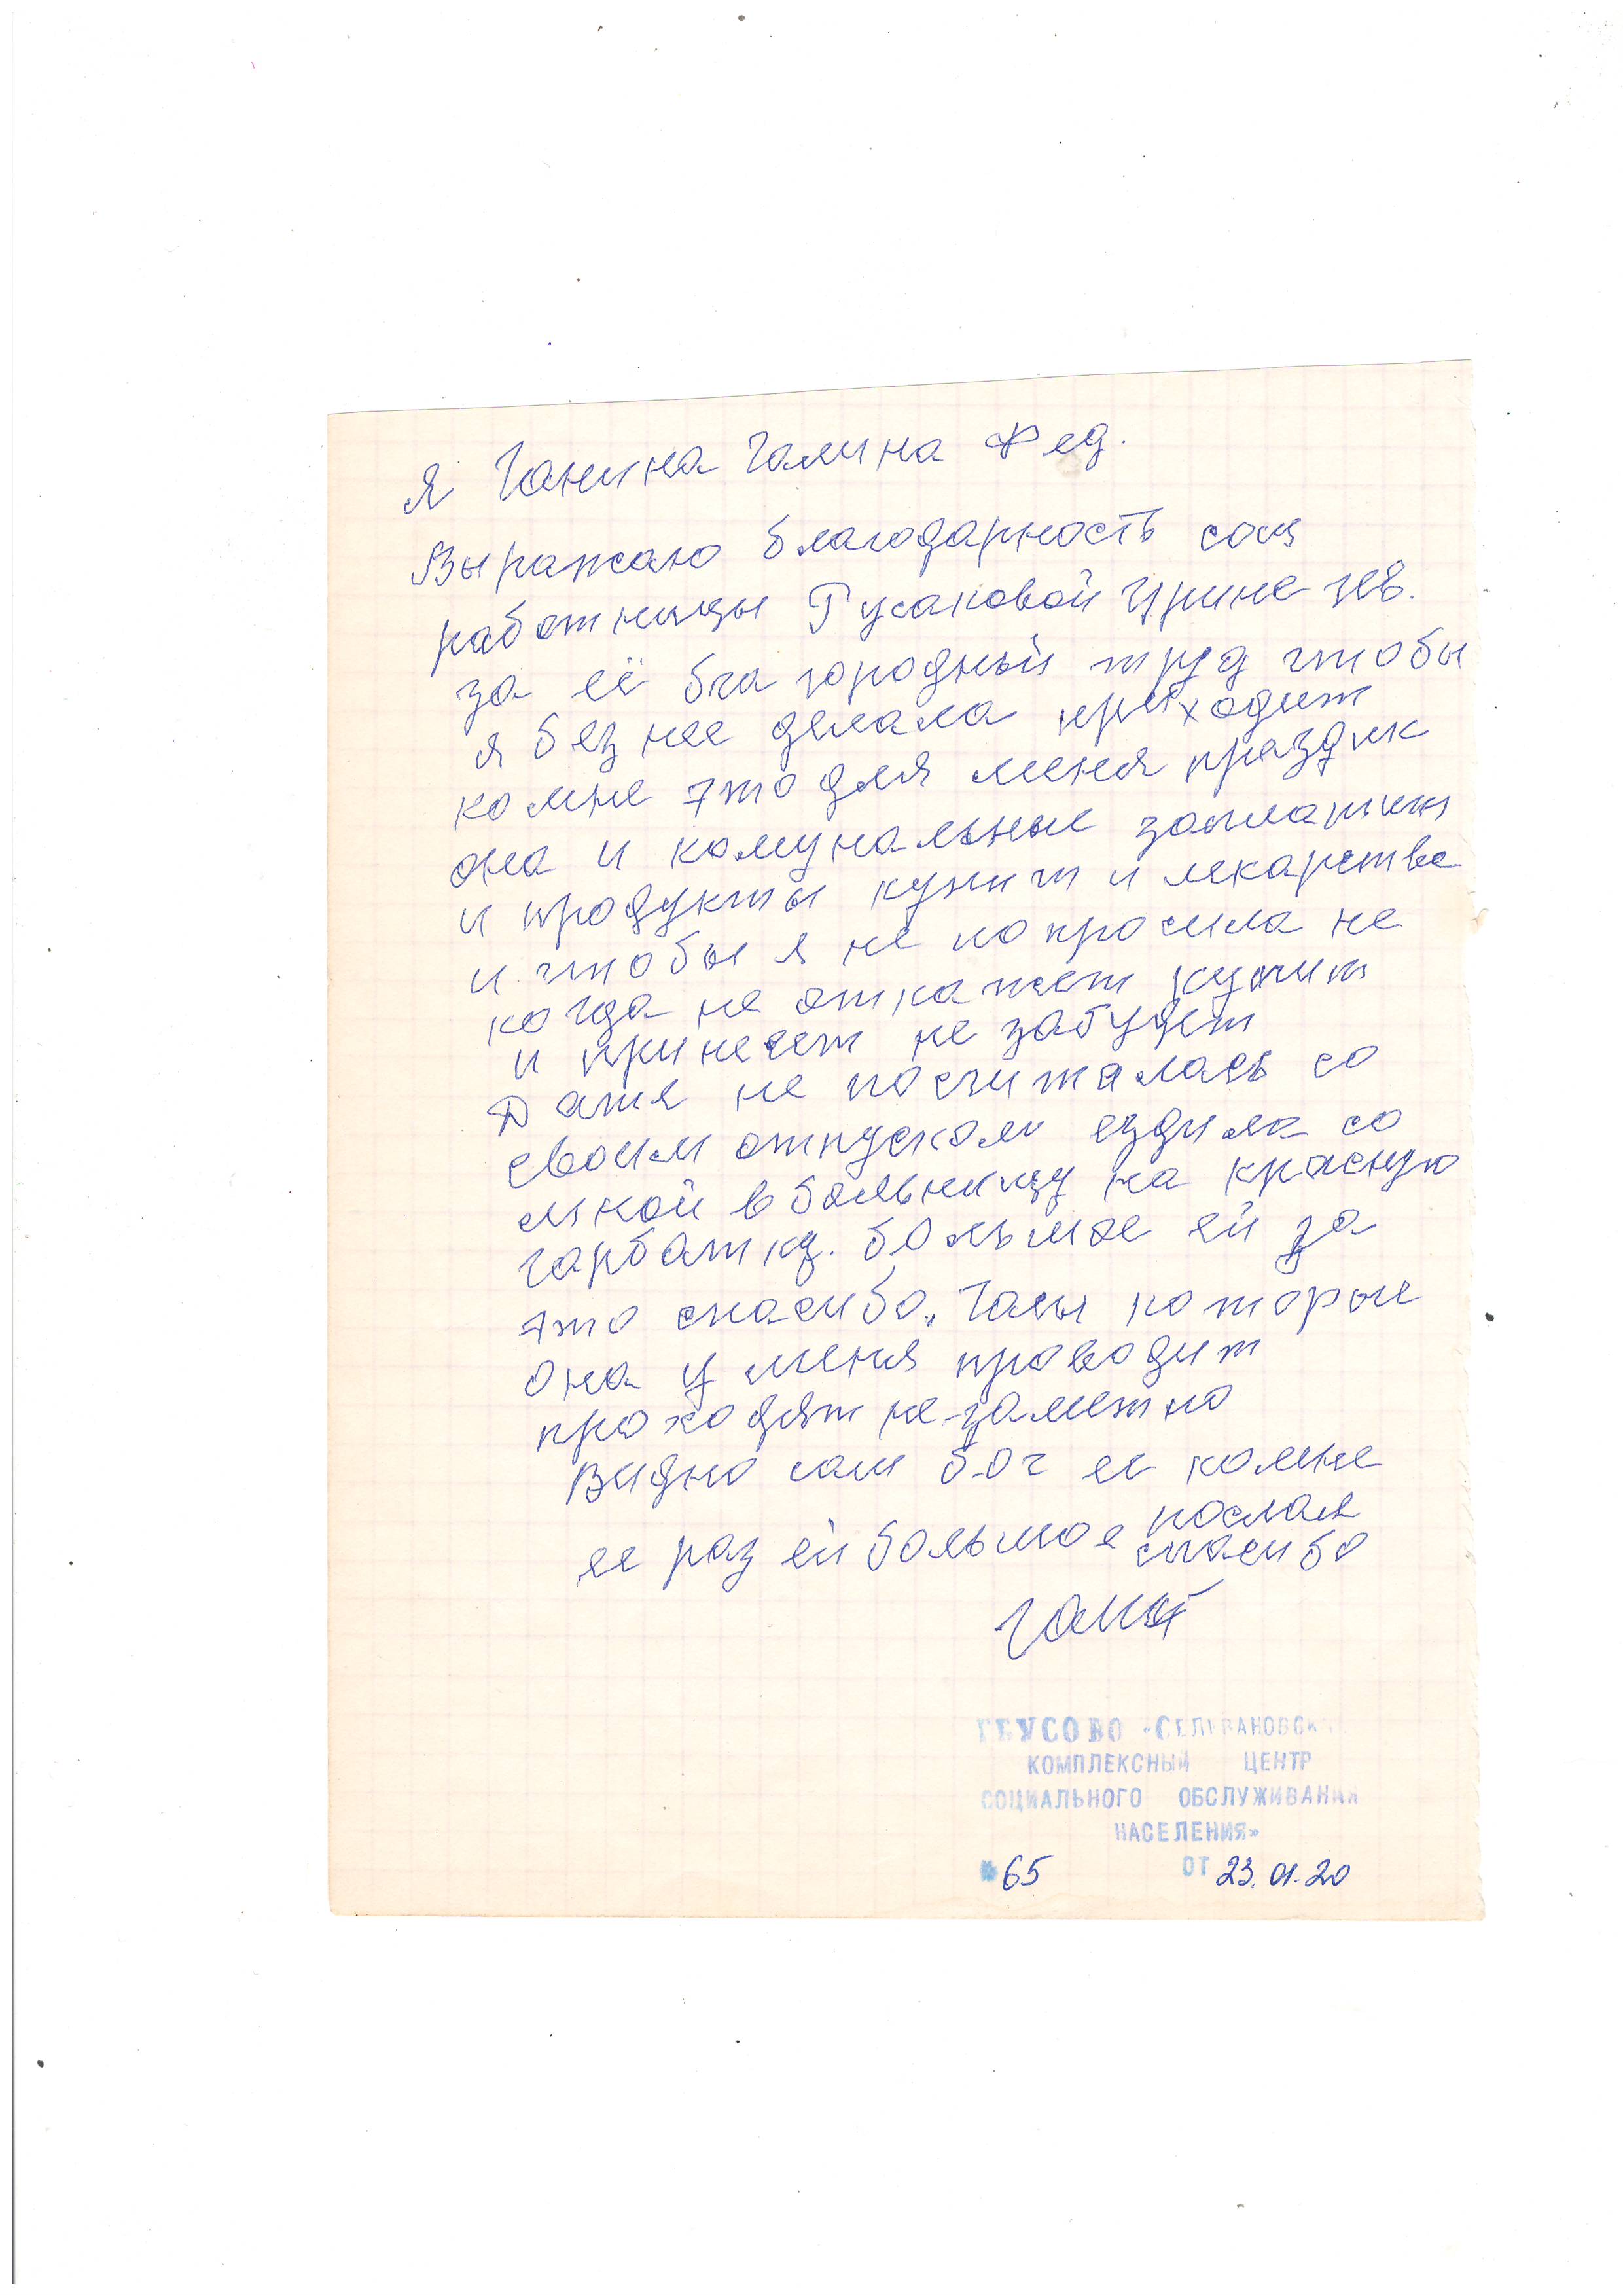 Я Ганина Галина Фед.
Выражаю благодарность соц
работницы Гусаковой Ирине
за её благородный труд чтобы
я без нее делала приходит
ко мне это для меня праздик
она и комунальные заплатит
и продукты купит и лекарства
и чтобы я не попросила не
когда не откажет купит
и принесет не забудет
Даже не посчиталась со
своим отпуском ездила со
мной в больницу на красную
гарбатку. большое ей за
это спасибо. Часы которые
она у меня проводит
проходят не заметно
Видно сам бог ее ко мне
послал
ее раз ей большое спасибо
ГБУСОВО «СЕЛИВАНОВСКИЙ
КОМПЛЕКСНЫЙ ЦЕНТР
СОЦИАЛЬНОГО ОБСЛУЖИВАНИЯ
НАСЕЛЕНИЯ»
№ 65 ОТ 23.01.20